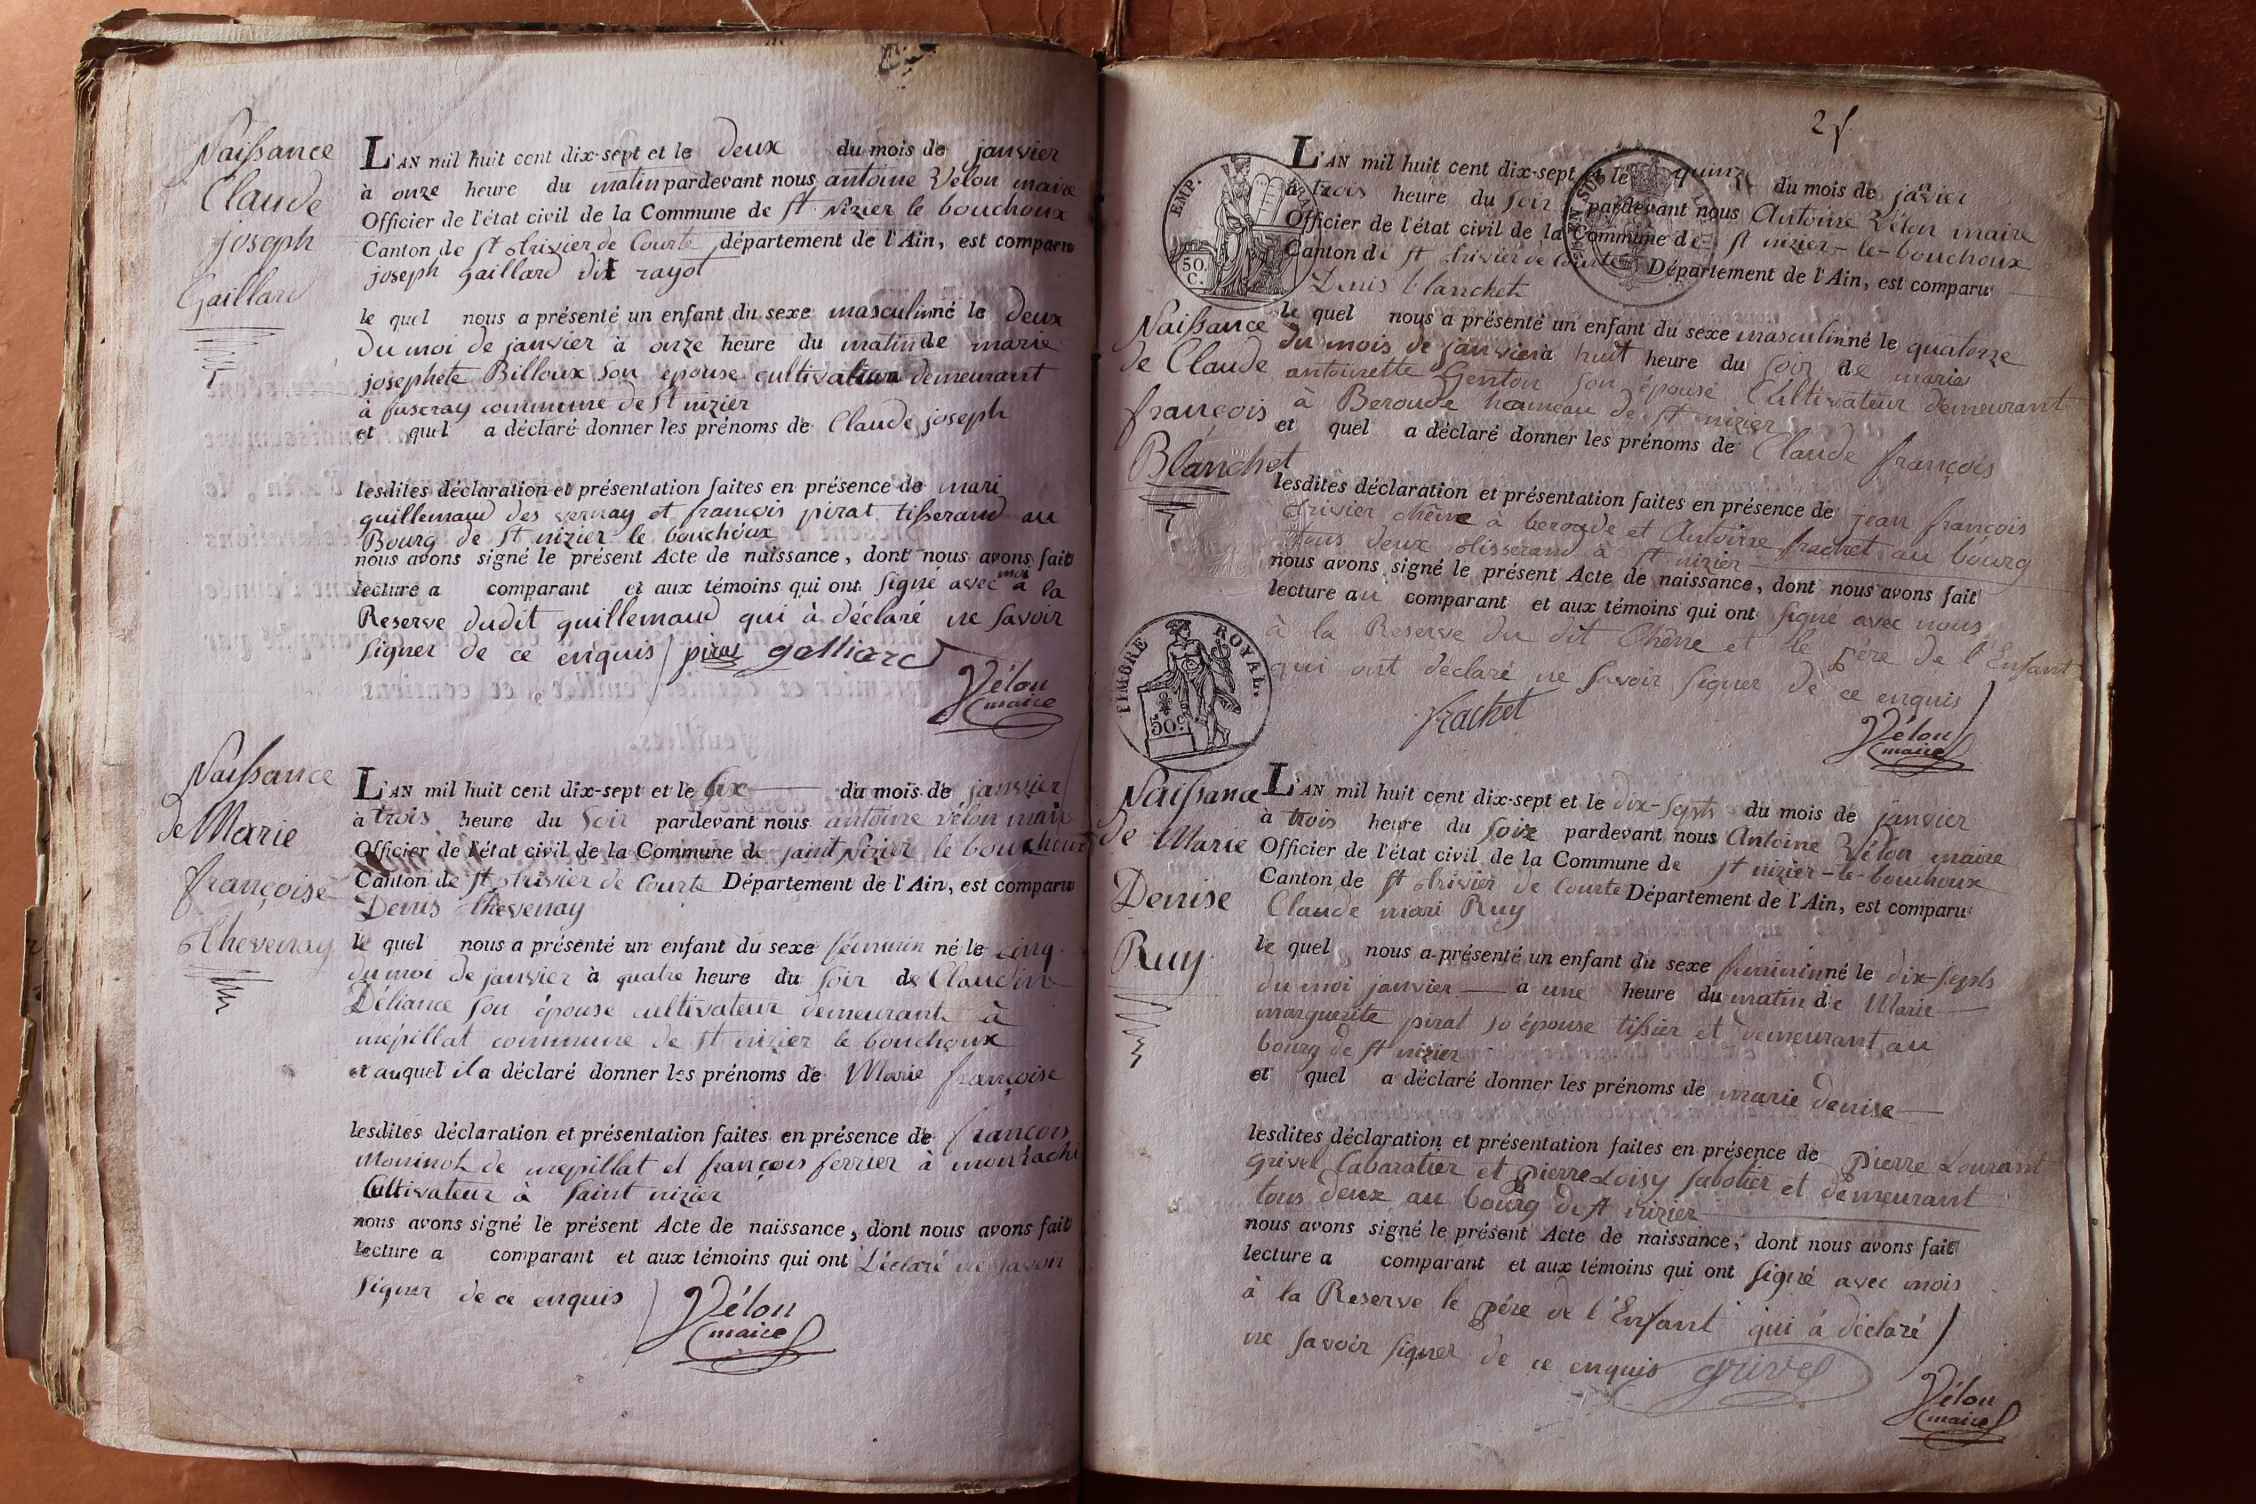 Naissance
Claude
joseph
Gaillard
L'AN mil huit cent dix-sept et le deux du mois de janvier
à onze heure du matin pardevant nous antoine Vélon maire
Officier de l'état civil de la Commune de St Nizier le bouchoux
Canton de St trivier de Courte département de l'Ain, est comparu
joseph gaillard dit rayot
le quel nous a présenté un enfant du sexe masculin né le deux
du moi de janvier à onze heure du matin de marie
josephete Billoux son epouse cultivateur demeurant
à commune de St nizier
et quel a déclaré donner les prénoms de Claude joseph
lesdites déclaration et présentation faites en présence de mari
guillemaud des vernay et françois pirat tisserand au
Bourg de St nizier le bouchoux
nous avons signé le présent Acte de naissance, dont nous avons fait
lecture a comparant et aux témoins qui ont signé avec moi à la
Reserve dudit guillemaud qui à déclaré ne savoir
signer de ce enquis pirat galliard
Vélon
maire
Naissance
de Marie
françoise
Chevenay
L'AN mil huit cent dix-sept et le six du mois de janvier
à trois heure du soir pardevant nous antoine vélon maire
Officier de l'état civil de la Commune de saint Nizier le bouchoux
Canton de St trivier de Courte Département de l'Ain, est comparu
Denis Chevenay
le quel nous a présenté un enfant du sexe féminin né le cinq
du moi de janvier à quatre heure du soir de Claudine
Déliance son épouse cultivateur demeurant à
mépillat commune de St nizier le bouchoux
et auquel il a déclaré donner les prénoms de Marie françoise
lesdites déclaration et présentation faites en présence de françois
Moninot de mepillat et françois ferrier à
Cultivateur à Saint nizier
nous avons signé le présent Acte de naissance, dont nous avons fait
lecture a comparant et aux témoins qui ont Déclaré ne savoir
signer de ce enquis
Vélon
maire
2
EMP.
50.
C.
L'AN mil huit cent dix-sept et le quinze du mois de janvier
à trois heure du soir pardevant nous Antoine Vélon maire
Officier de l'état civil de la Commune de St nizier-le-bouchoux
Canton de St trivier de Courte Département de l'Ain, est comparu
Denis blanchet
Naissance
de Claude
françois
Blanchet
le quel nous a présenté un enfant du sexe masculin né le quatorze
du mois de janvier à huit heure du soir de marie
antoinette Genton son épouse Cultivateur demeurant
à Beroude hameau de St nizier
et quel a déclaré donner les prénoms de Claude françois
lesdites déclaration et présentation faites en présence de jean françois
trivier chêne à beroude et Antoine frachet au bourg
tous deux tisserand à St nizier
nous avons signé le présent Acte de naissance, dont nous avons fait
lecture au comparant et aux témoins qui ont signé avec nous
à la Reserve du dit Chêne et le père de l'Enfant
qui ont declaré ne savoir signer de ce enquis
frachet
Vélon
maire
TIMBRE ROYAL.
50c.
Naissance
de Marie
Denise
Ruy
L'AN mil huit cent dix-sept et le dix-septs du mois de janvier
à trois heure du soir pardevant nous Antoine Vélon maire
Officier de l'état civil de la Commune de St nizier-le-bouchoux
Canton de St trivier de Courte Département de l'Ain, est comparu
Claude mari Ruy
le quel nous a présenté un enfant du sexe feminin né le dix-septs
du moi janvier à une heure du matin de Marie
marguerite pirat so épouse tissier et demeurant au
bourg de St nizier
et quel a déclaré donner les prénoms de marie denise
lesdites déclaration et présentation faites en présence de pierre Lourant
grivel Cabaratier et pierre Loisy sabotier et demeurant
tous deux au bourg de St nizier
nous avons signé le présent Acte de naissance, dont nous avons fait
lecture a comparant et aux témoins qui ont signé avec mois
à la Reserve le père de l'Enfant qui à déclaré
ne savoir signer de ce enquis grivel
Vélon
maire